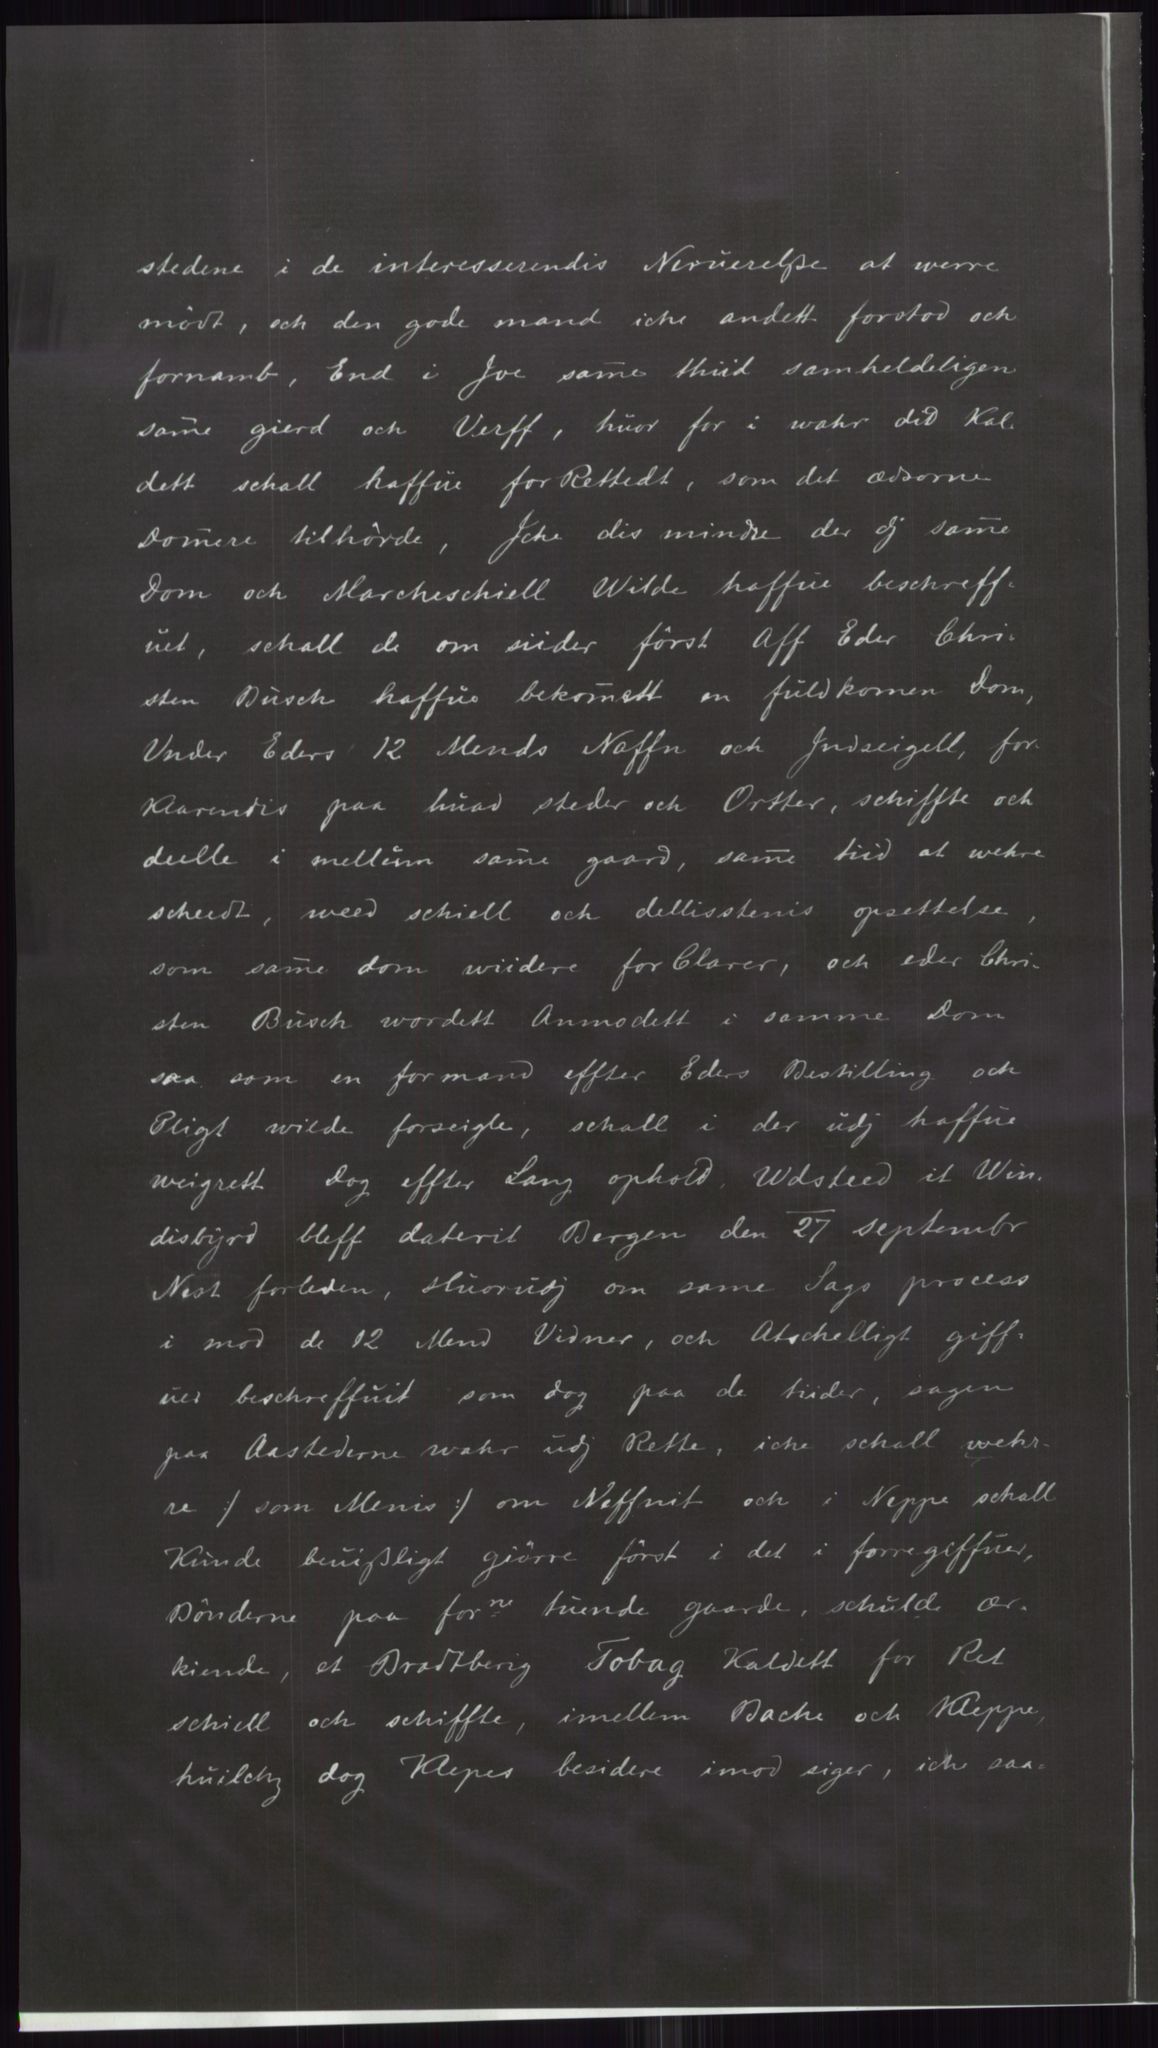 stedene i de interesserendis Neruerelsße at werre
mödt, och den gode mand iche andett forstod och
fornamb, End i Joe sam̄e thiid samheldeligen
sam̄e gierd och Verff, huor for i wahr did Kal-
dett schall haffue forRettedt, som det ædsorne
Dom̄ere tilhörde, Iche dis mindre der dj sam̄e
Dom och Marcheschiell Wilde haffue beschreff-
uet, schall de om siider först Aff Eder Chri-
sten Busch haffue bekom̄ett en fuldkomen Dom,
Vnder Eders 12 Mends Naffn och Indseigell, for-
Klarendis paa huad steder och Ortter, schiffte och
deelle i mellum sam̄e gaard, sam̄e tiid at wehre
scheedt, weed schiell och dellisstenis opsettelse,
som sam̄e dom wiidere forClarer, och eder Chri-
sten Busch wordett Anmodett i samme Dom
saa som en formand effter Eders Bestilling och
Pligt wilde forseigle, schall i der udj haffue
weigrett Dog effter Lang ophold. Wdsteed it Win-
disbyrd bleff daterit Bergen den 27 septembr
Nest forleden, Huorudj om same Sags process
i mod de 12 Mend Vidner, och Atschelligt giff-
uer beschreffuit som dog paa de tiider, sagen
paa Aastederne wahr udj Rette, iche schall wehr-
re :/ som Menis :/ om Neffnit och i Neppe schall
Kunde beuißligt giörre först i det i forregiffuer,
Bönderne paa forne tuende gaarde, schulde er-
kiende, et Bradtberig Tobag Kaldett for Ret
schiell och schiffte, imellem Bache och Kleppe,
huilchz dog Klepes besidere imod siger, iche saa-